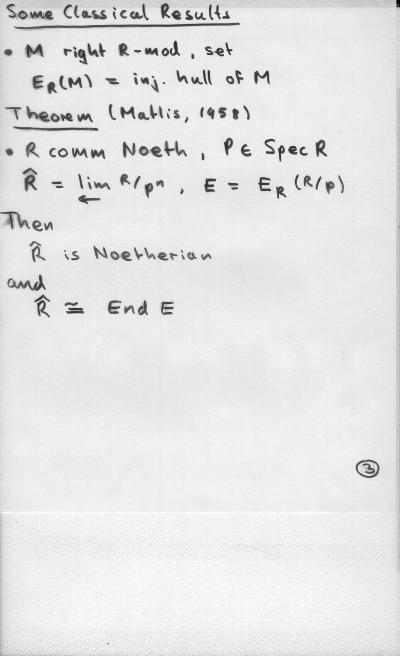 Some Classical Results
• M right R-mod, set
E_R(M) = inj. hull of M
Theorem (Matlis, 1958)
• R comm Noeth, P ∈ Spec R
R̂ = lim← R/pⁿ, E = E_R(R/p)
Then
R̂ is Noetherian
and
R̂ ≅ End E
3